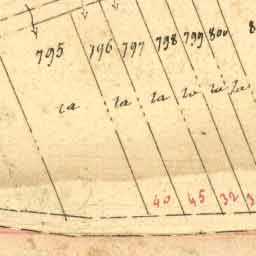 795 796 797 798 799 800 8
la la la la la la
40 45 32 3